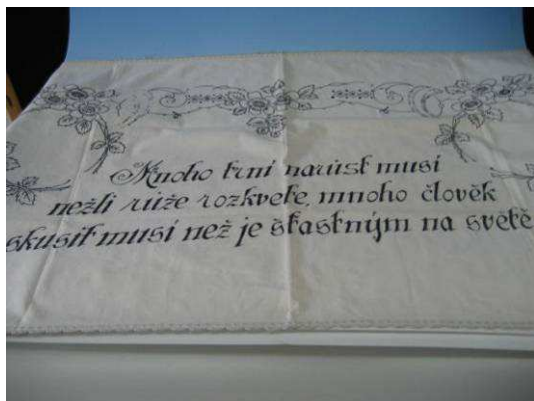 Mnoho trní narůst musí
nežli růže rozkvete, mnoho člověk
skusit musí než je šťastným na světě